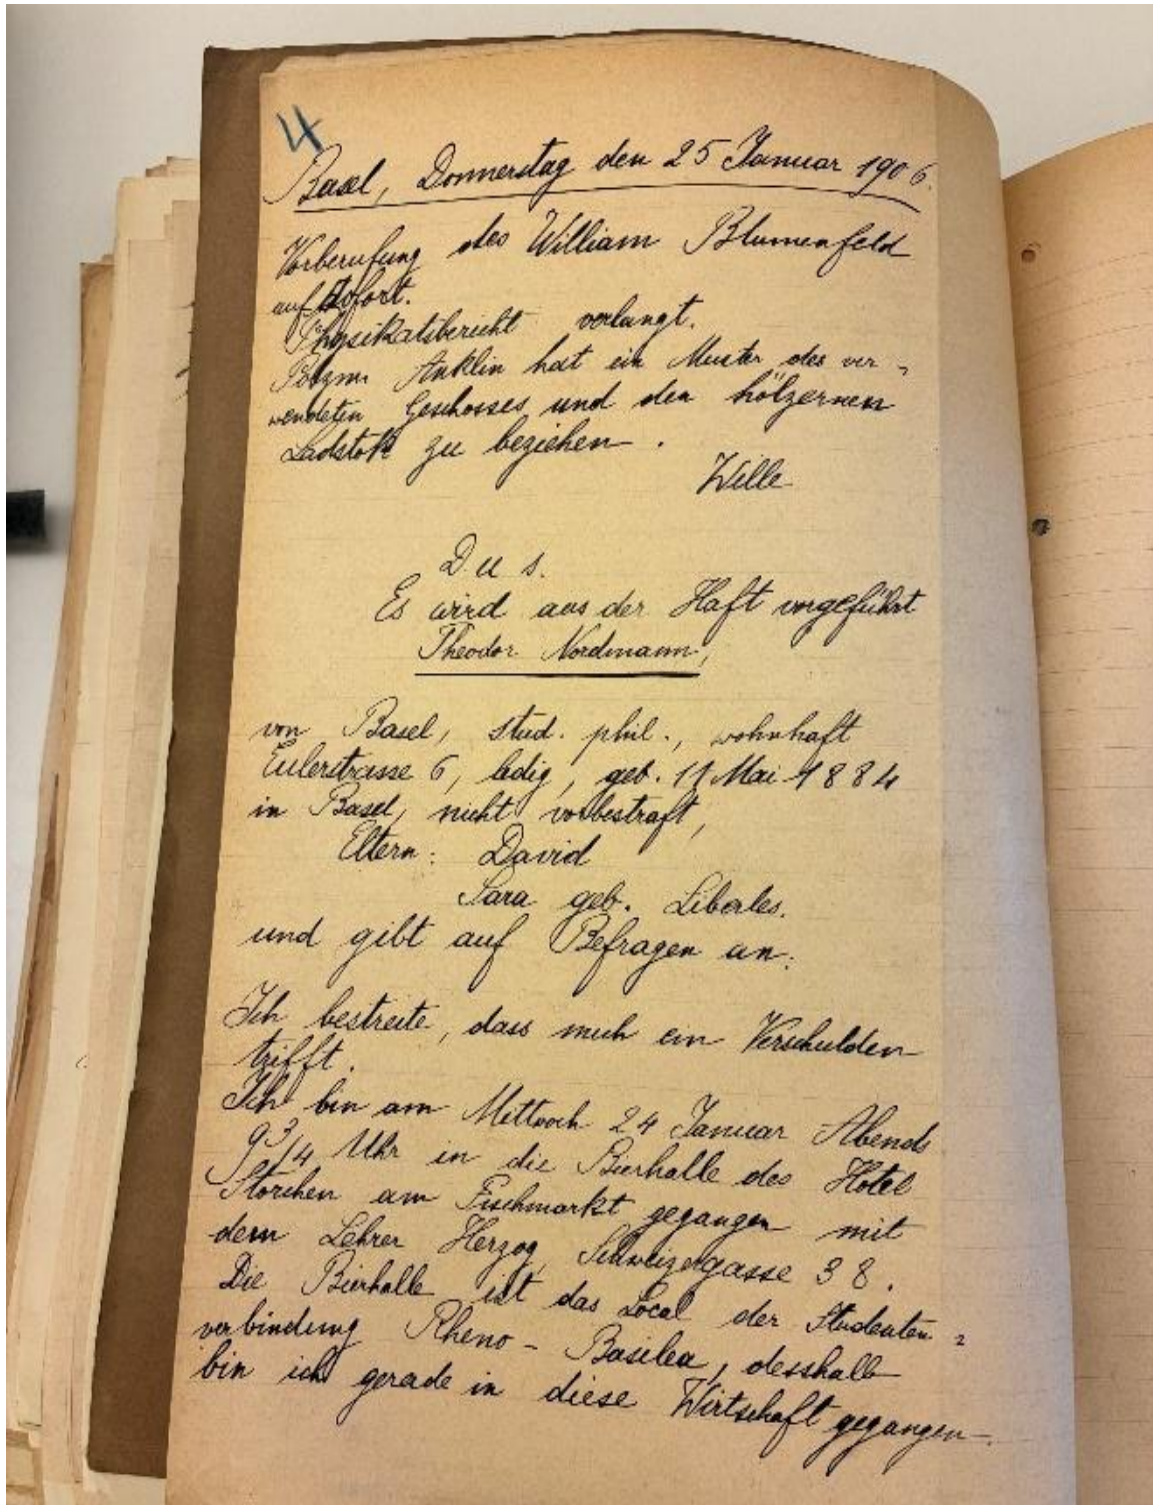 4
Basel, Donnerstag den 25 Januar 1906.
Vorberufung des William Blumenfeld
auf sofort.
Physikatsbericht verlangt.
Polzm. Anklin hat ein Muster des ver=
wendeten Geschosses und den hölzernen
Ladstok zu beziehen.
Wille
D u s.
Es wird aus der Haft vorgeführt
Theodor Nordmann,
von Basel, stud. phil., wohnhaft
Eulerstrasse 6, ledig, geb. 11 Mai 1884
in Basel, nicht vorbestraft,
Eltern: David
Sara geb. Liberles.
und gibt auf Befragen an:
Ich bestreite, dass mich ein Verschulden
trifft.
Ich bin am Mittwoch 24 Januar Abends
9 3/4 Uhr in die Bierhalle des Hotel
Storchen am Fischmarkt gegangen mit
dem Lehrer Herzog, Schweizergasse 38.
Die Bierhalle ist das Local der Studenten=
verbindung Rheno-Basilea, desshalb
bin ich gerade in diese Wirtschaft gegangen.